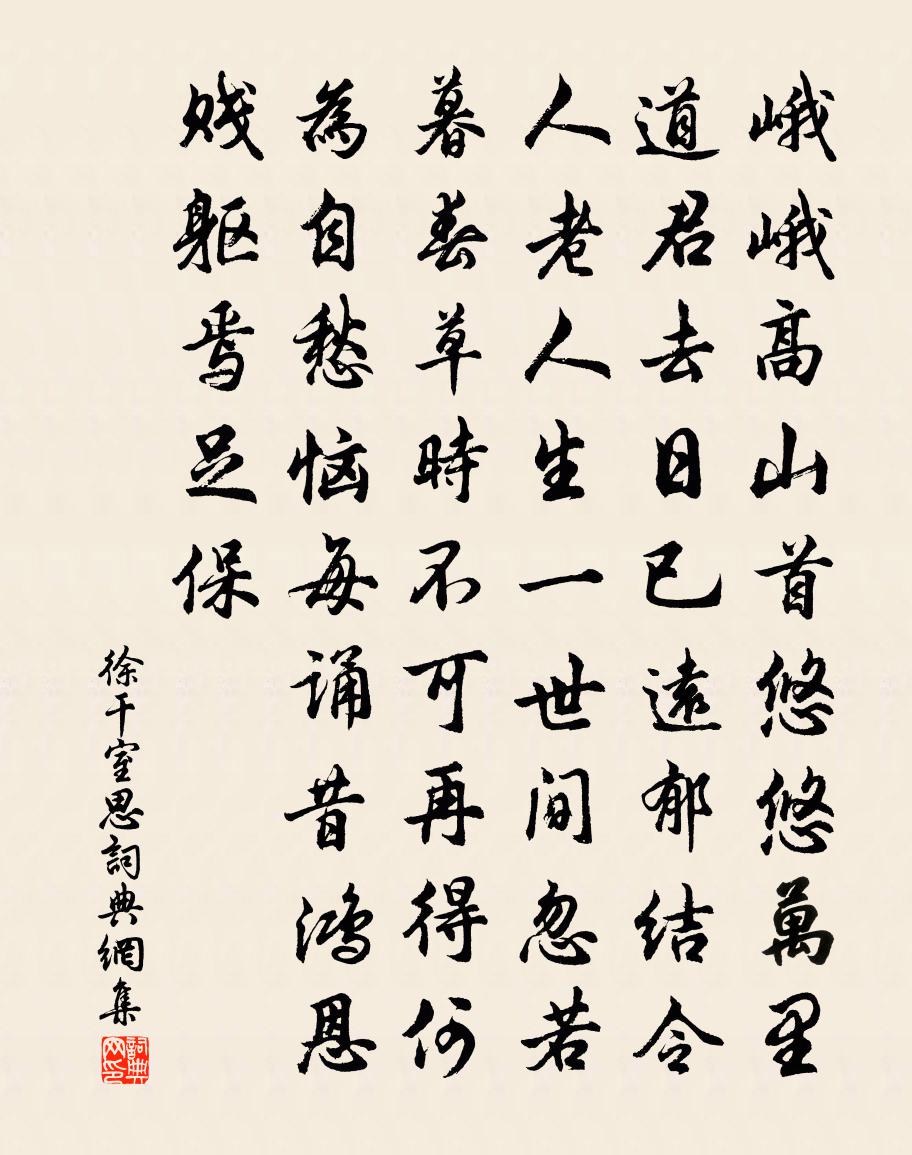 峨峨高山首悠悠萬里
道君去日已遠郁结令
人老人生一世間忽若
暮春草時不可再得何
為自愁恼每诵昔鸿恩
贱躯焉足保
徐干室思詞典網集
詞典网印